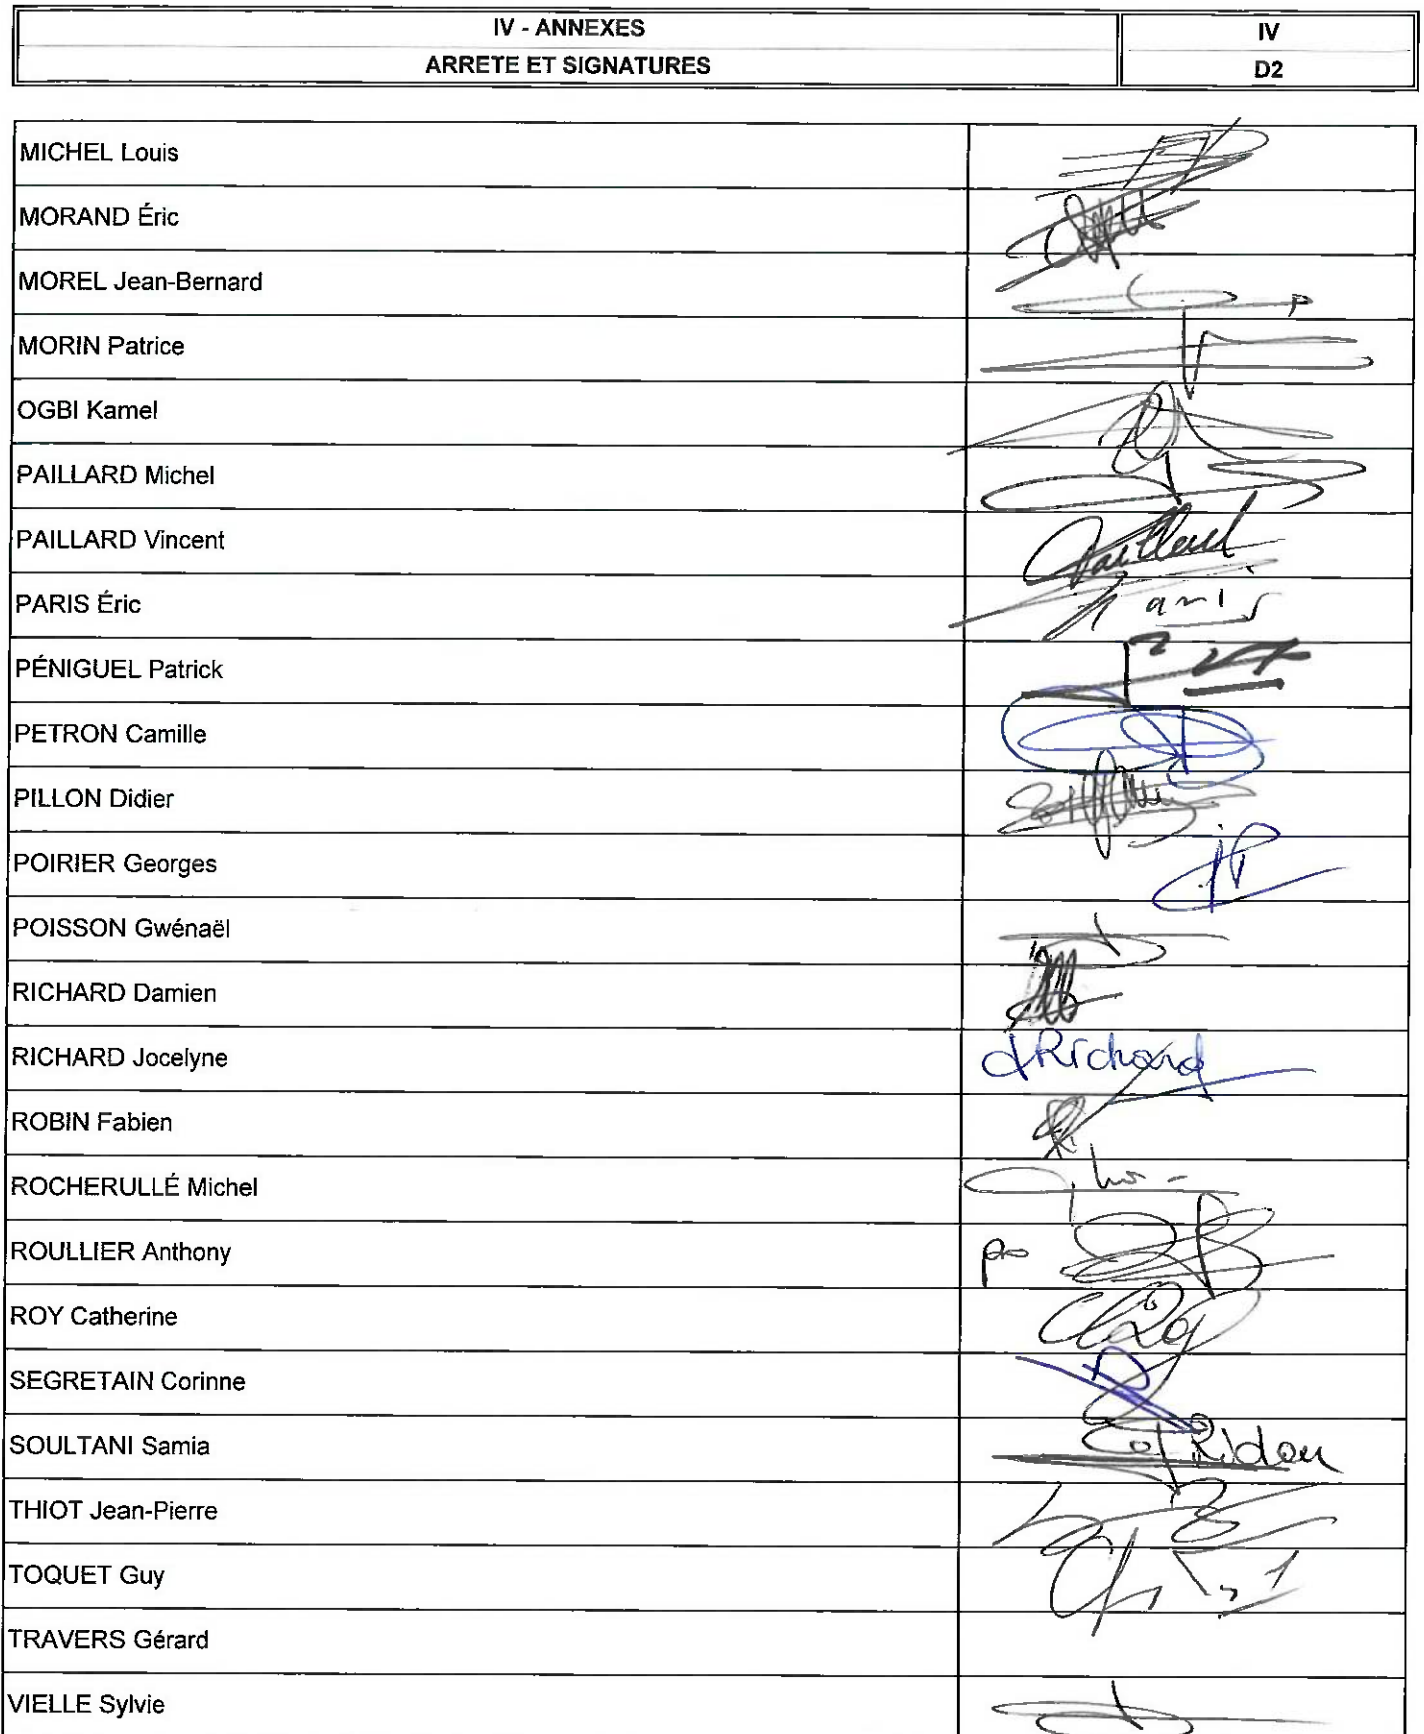 IV - ANNEXES
IV
ARRETE ET SIGNATURES
D2
MICHEL Louis
MORAND Éric
MOREL Jean-Bernard
MORIN Patrice
OGBI Kamel
PAILLARD Michel
PAILLARD Vincent
Paillard
PARIS Éric
Paris
PÉNIGUEL Patrick
PETRON Camille
PILLON Didier
POIRIER Georges
POISSON Gwénaël
RICHARD Damien
RICHARD Jocelyne
JRichard
ROBIN Fabien
ROCHERULLÉ Michel
ROULLIER Anthony
po
ROY Catherine
SEGRETAIN Corinne
SOULTANI Samia
THIOT Jean-Pierre
TOQUET Guy
TRAVERS Gérard
VIELLE Sylvie